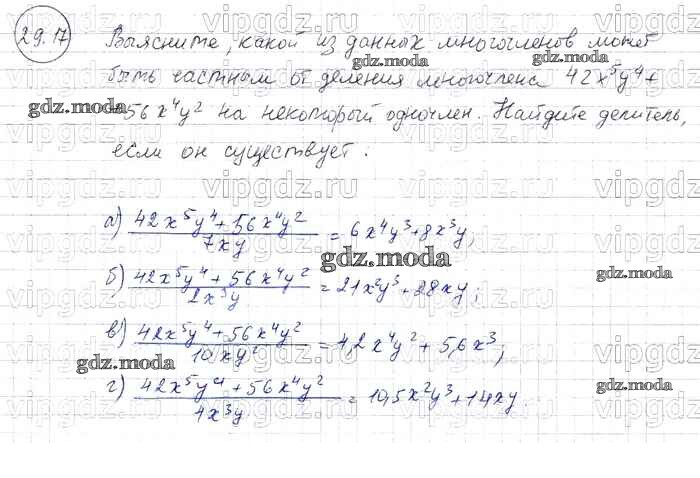 29.17
Выясните, какой из данных многочленов может
быть частным от деления многочлена 42x⁵y⁴+
+56x⁴y² на некоторый одночлен. Найдите делитель,
если он существует:
а) (42x⁵y⁴+56x⁴y²)/(7xy) = 6x⁴y³+8x³y;
б) (42x⁵y⁴+56x⁴y²)/(2x³y) = 21x²y³+28xy;
в) (42x⁵y⁴+56x⁴y²)/(10xy²) = 4,2x⁴y²+5,6x³;
г) (42x⁵y⁴+56x⁴y²)/(4x³y) = 10,5x²y³+14xy.
vipgdz.ru
gdz.moda